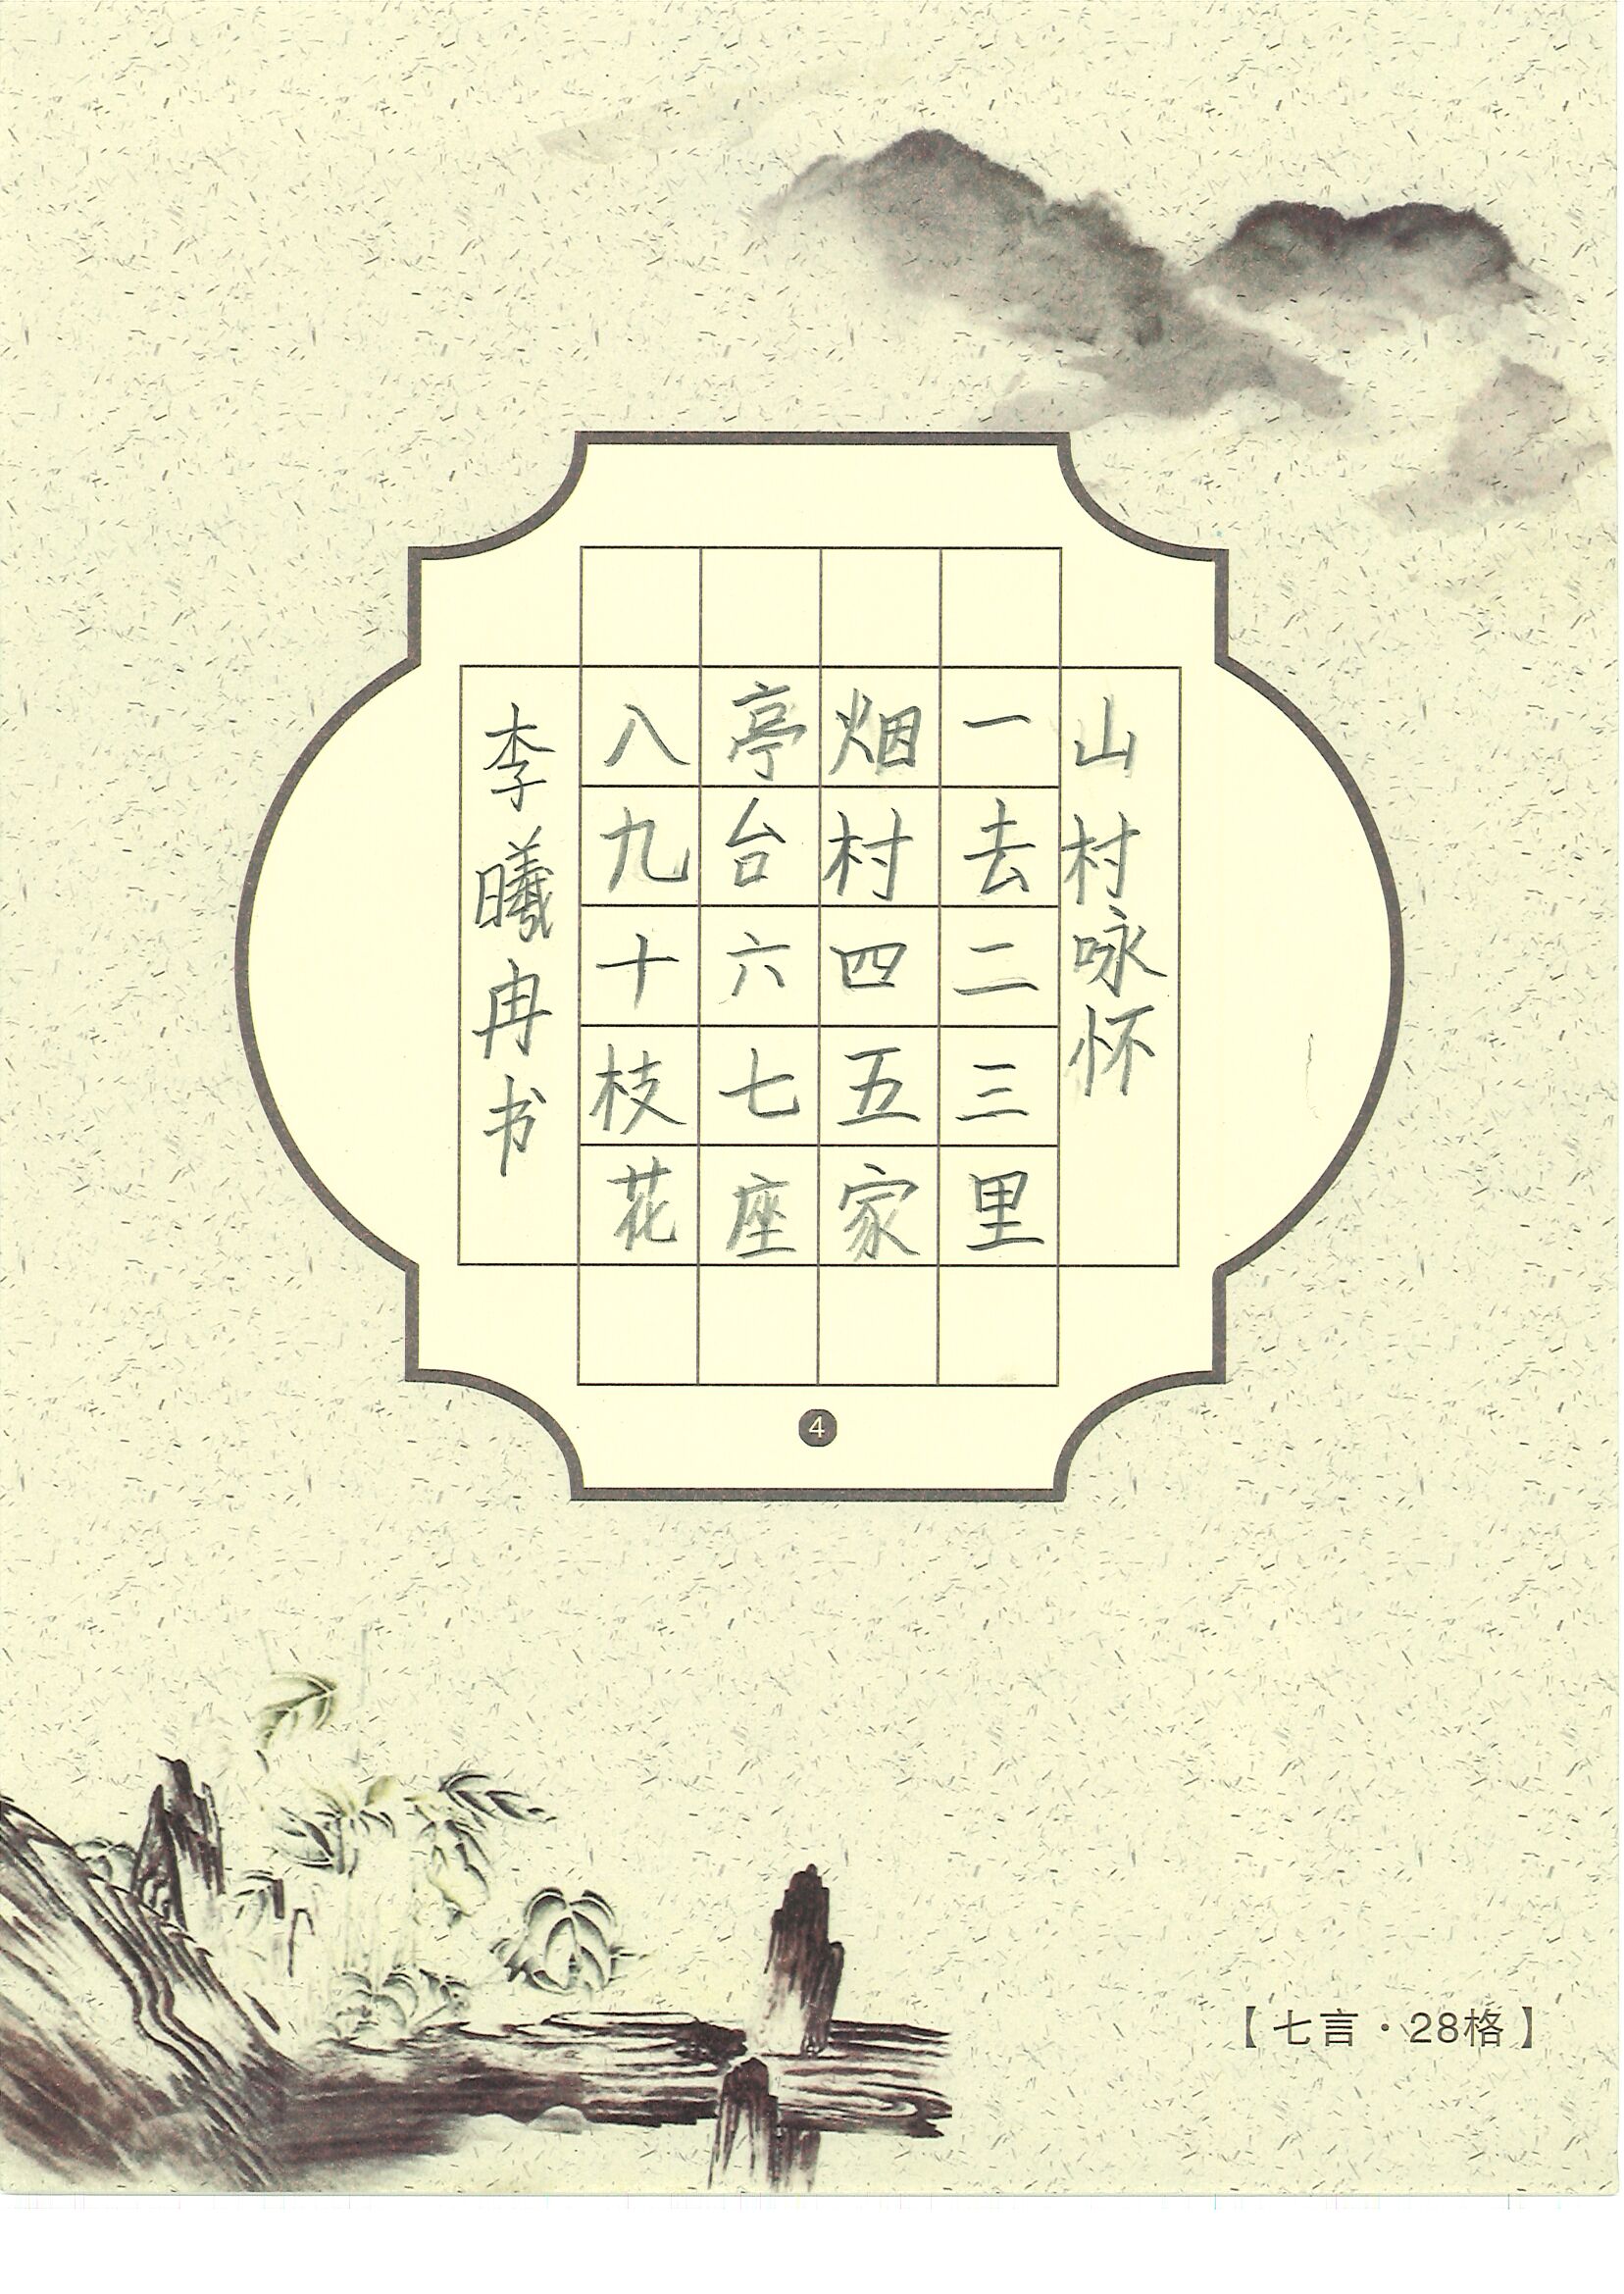 山村咏怀
一去二三里
烟村四五家
亭台六七座
八九十枝花
李曦冉书
4
【七言·28格】